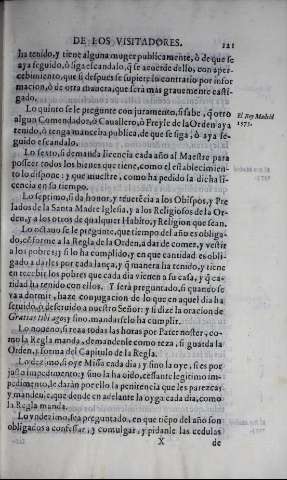 DE LOS VISITADORES. 121
ha tenido, y tiene alguna muger publicamente, ò de que se
aya seguido, ò siga escandalo, q̃ se acorde dello, con aper-
cebimiento, que si despues se supiere lo contrario por infor
macion, ò de otra manera, que serà mas grauemente casti-
gado.
Lo quinto se le pregunte con juramento, si sabe, q̃ otro
algun Comendador, ò Cauallero, ò Freyle de la Orden aya
tenido, ò tenga manceba publica, de que se siga, ò aya se-
guido escandalo.
El Rey Madrid
1573.
Lo sexto, si demanda licencia cada año al Maestre para
posseer todos los bienes que tiene, como el establecimien-
to lo dispone: y que muestre, como ha pedido la dicha li-
cencia en su tiempo.
Lo septimo, si da honor, y reuerẽcia a los Obispos, y Pre
lados de la Santa Madre Iglesia, y a los Religiosos de la Or-
den, y a los otros de qualquier Habito, y Religion que sean.
Lo octauo se le pregũte, que tiempo del año es obliga-
do, cõforme a la Regla de la Orden, a dar de comer, y vestir
a los pobres; y si lo ha cumplido, y en que cantidad es obli-
gado a darles por cada lança, y q̃ manera ha tenido, y tiene
en recebir los pobres que cada dia vienen a su casa, y q̃ ca-
ridad ha tenido con ellos; Y serà preguntado, si quando se
va a dormir, haze conjugacion de lo que en aquel dia ha
seruido, ò desseruido a nuestro Señor: y si dize la oracion de
Gratias tibi ago; y sino, mandarselo ha cumplir.
Lo noueno, si reza todas las horas por Pater noster, co-
mo la Regla manda, demandenle como reza, si guarda la
Orden, y forma del Capitulo de la Regla.
Lo dezimo, si oye Missa cada dia; y sino la oye, si es por
justo impedimento; y sino la ha oido, cessante legitimo im-
pedimento, le daràn por ello la penitencia que les parezca;
y mandeule, que dende en adelante la oyga cada dia, como
la Regla manda.
Lo vndezimo, sea preguntado, en que tiẽpo del año son
obligados a confessar, y comulgar, y pidanle las cedulas
X de